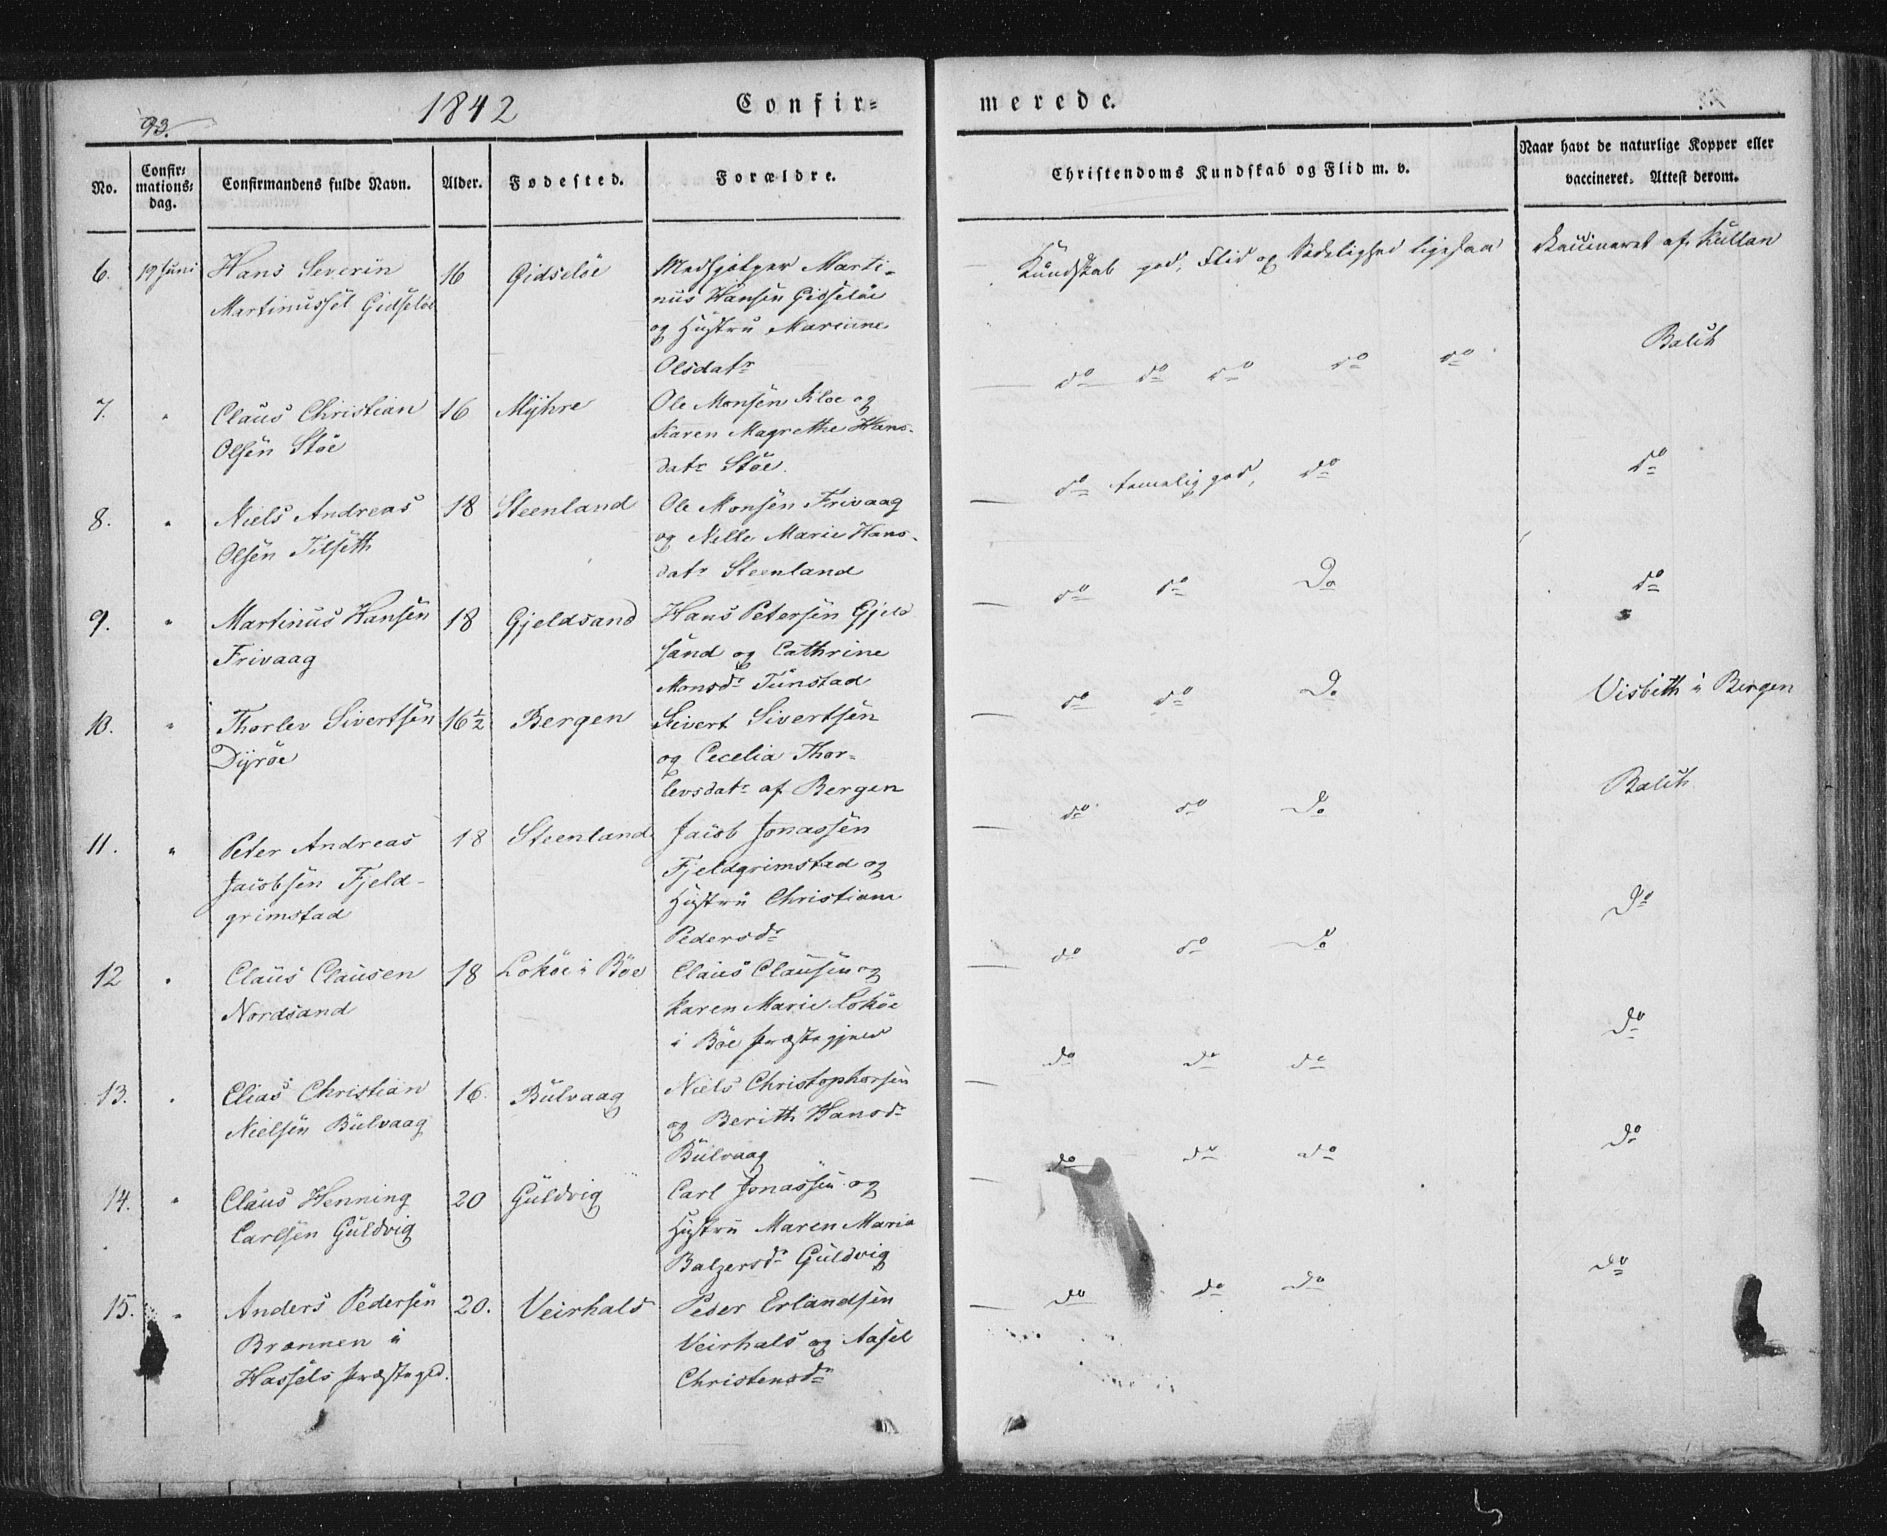 93.
1842
Confir-
merede.
No.
Confir-
mations-
dag.
Confirmandens fulde Navn.
Alder.
Fødested.
Forældre.
Christendoms Kundskab og Flid m. v.
Naar havt de naturlige Kopper eller
vaccineret. Attest derom.
6. 19 Juni Hans Severin 16 Gidseløe
Martinussøl Gidseløe
Martinus
nus Hansen Gidseløe
og Hustru Marianne
Olsdatr
Kundskab god, Flid og Sædelighed ligesaa
Vaccineret af
Balch
7. " Claus Christian 16 Myhre
Olsen Støe
Ole Monsen Kloe og
Karen Magrethe Hans-
datr Støe.
do do do do do
do
8. " Niels Andreas 18 Steenland
Olsen Tilseth
Ole Monsen Frivaag
og Nille Marie Hans-
datr Steenland
do temelig god, do
do
9. " Martinus Hansen 18 Gjeldsand
Frivaag
Hans Petersen Gjeld
sand og Cathrine
Monsdr Tunstad
do do Do
Visbeth i Bergen
10. " Thorlev Sivertsen 16½ Bergen
Dyrøe
Sivert Sivertsen
og Cecelia Thor-
levsdatr af Bergen
do do Do
Balch
11. " Peter Andreas 18 Steenland
Jacobsen Fjeld-
grimstad
Jacob Jonassen
Fjeldgrimstad og
Hustru Christiane
Pedersdr
do do Do
Do
12 " Claus Clausen 18 Lokøe i Bøe
Nordsand
Claus Clausen og
Karen Marie Lokøe
i Bøe Præstegjeld
do do Do
do
13. " Elias Christian 16. Bulvaag
Nielsen Bulvaag
Niels Christophersen
og Berith Hansdr
Bulvaag
do do do
do
14. " Claus Henning 20 Guldvig
Carlsen Guldvig
Carl Jonassen og
Hustru Maren Maria
Balzersdr Guldvig
do do do
do
15. " Anders Pedersen 20. Veirhals
Brønnen i
Hassels Præstegld.
Peder Erlandsen
Veirhals og Aasel
Christensdr
do do do